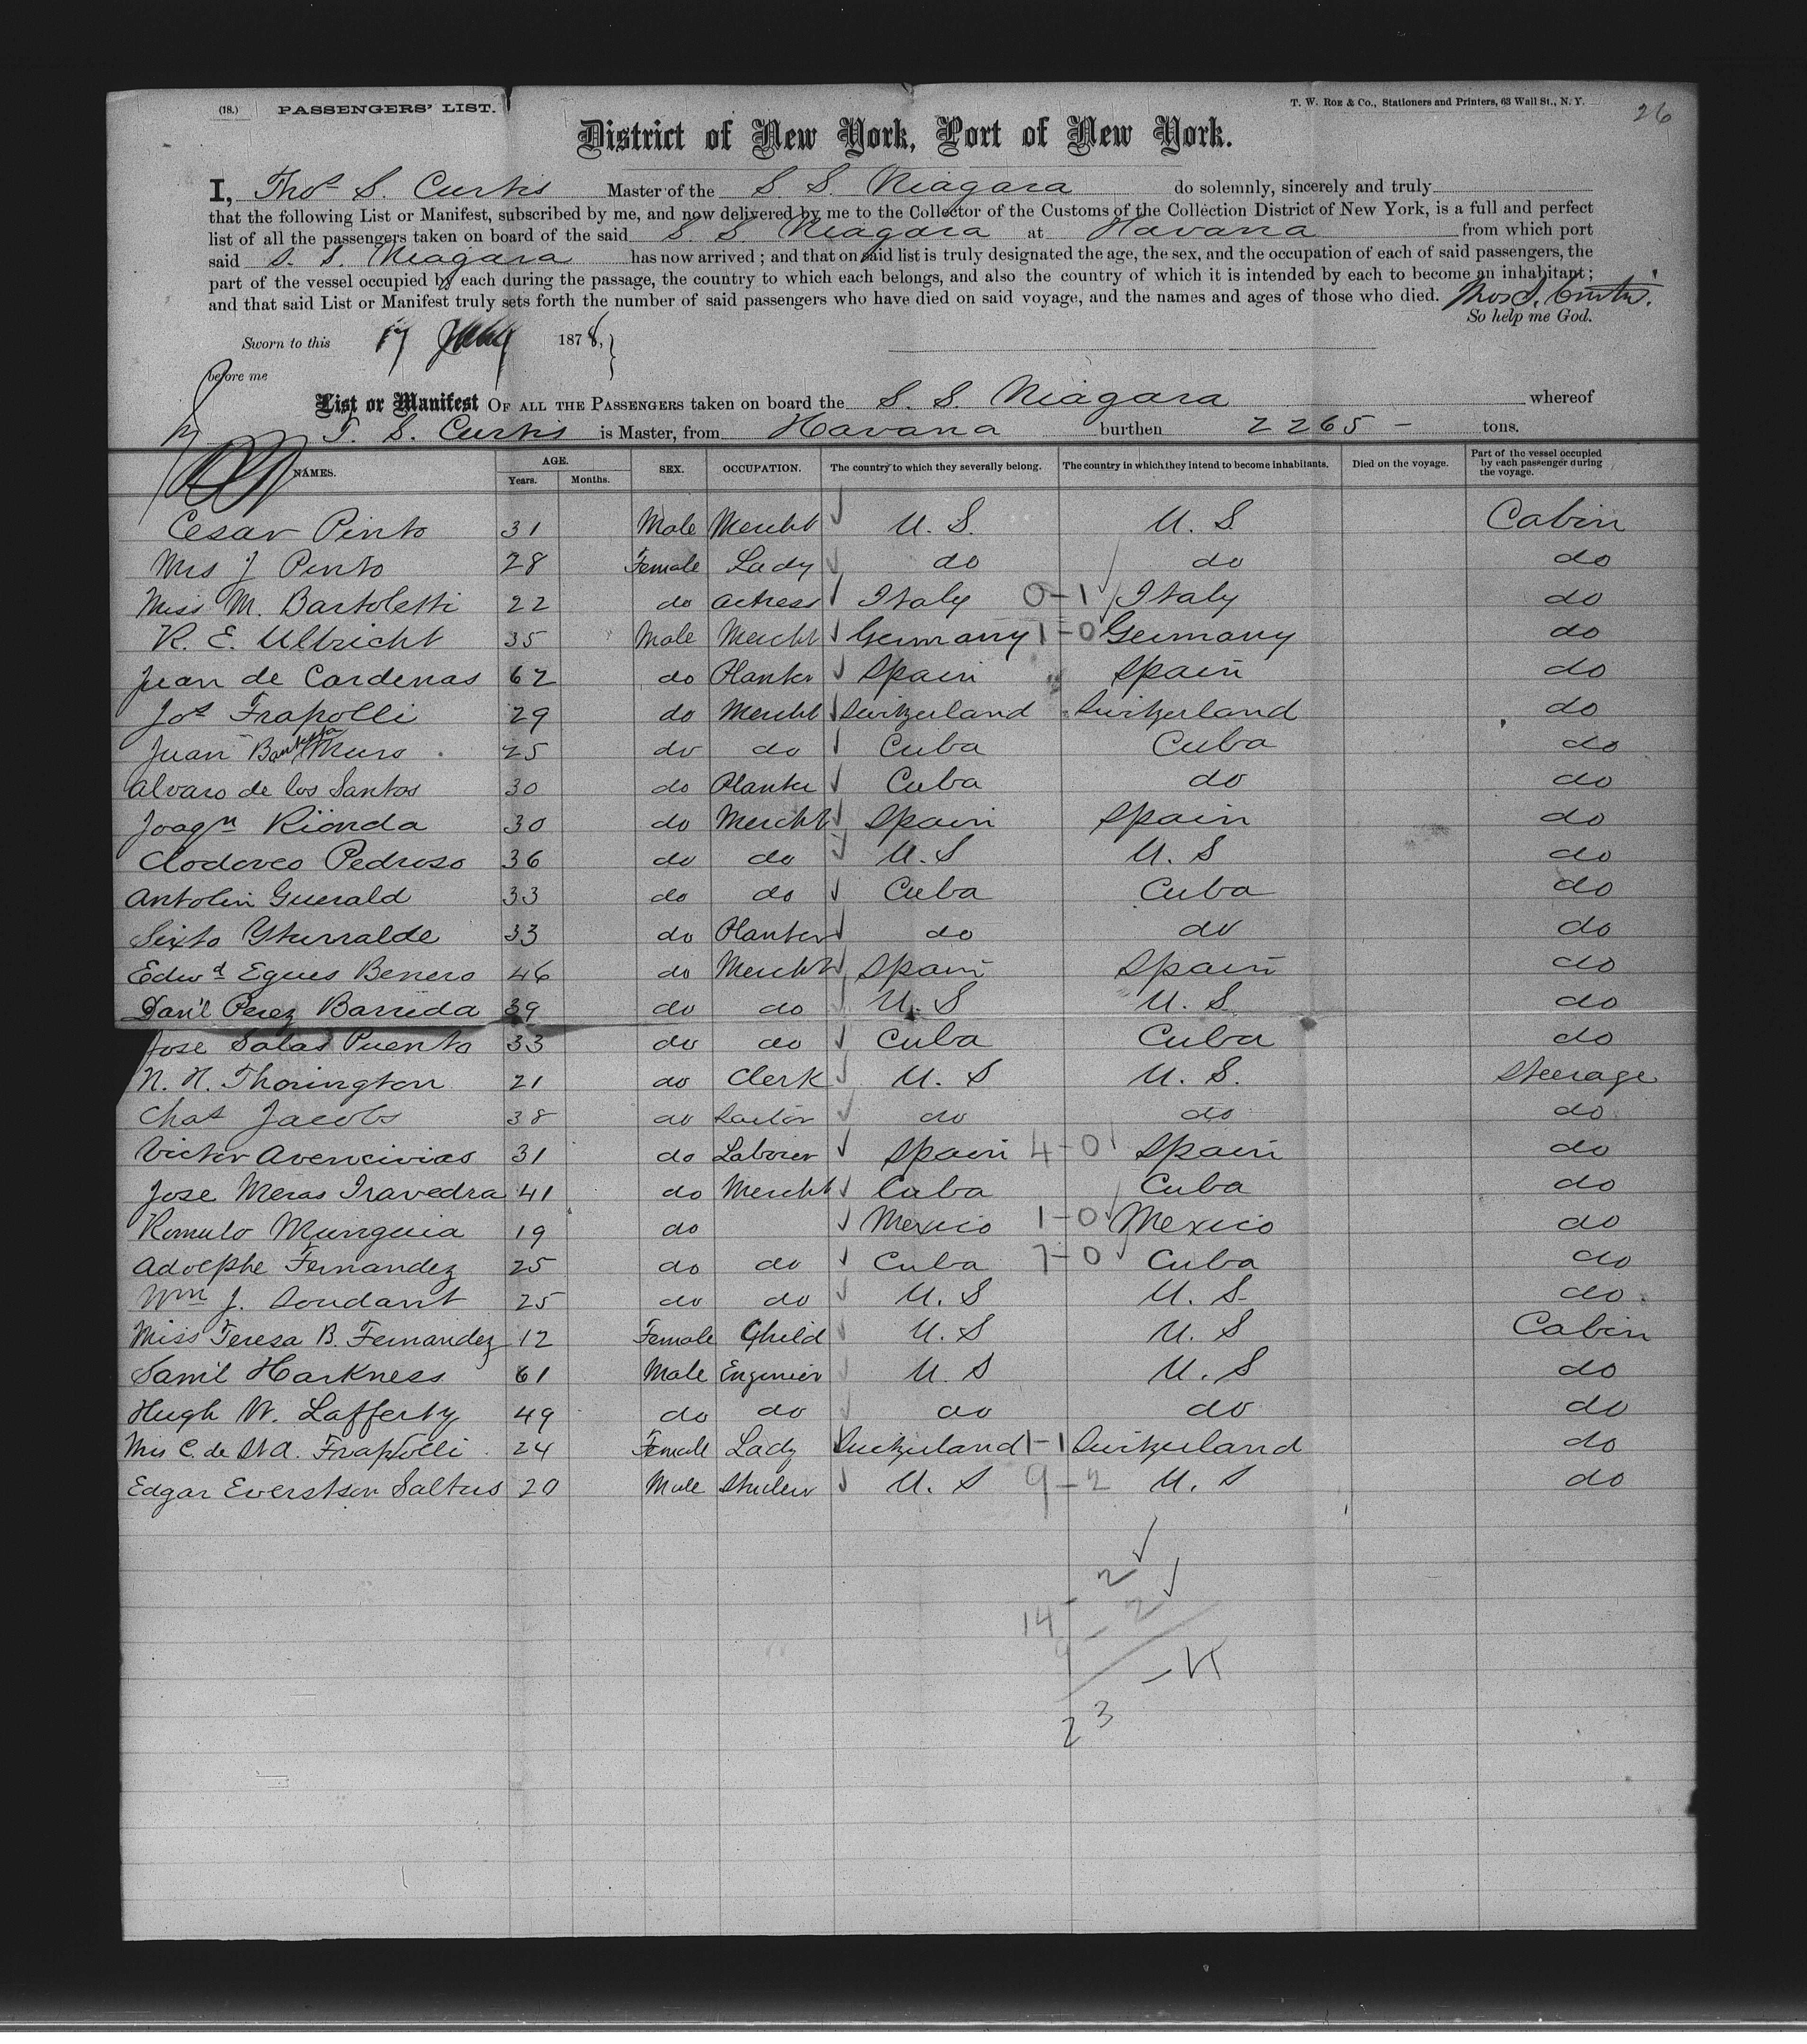 (18.) PASSENGERS' LIST. T. W. ROE & CO., Stationers and Printers, 63 Wall St., N. Y. 26
District of New York, Port of New York.
I, Thos S. Curtis Master of the S. S. Niagara do solemnly, sincerely and truly
that the following List or Manifest, subscribed by me, and now delivered by me to the Collector of the Customs of the Collection District of New York, is a full and perfect
list of all the passengers taken on board of the said S. S. Niagara at Havana from which port
said S. S. Niagara has now arrived; and that on said list is truly designated the age, the sex, and the occupation of each of said passengers, the
part of the vessel occupied by each during the passage, the country to which each belongs, and also the country of which it is intended by each to become an inhabitant;
and that said List or Manifest truly sets forth the number of said passengers who have died on said voyage, and the names and ages of those who died. Thos S. Curtis.
So help me God.
Sworn to this 17 1878,
before me
List or Manifest OF ALL THE PASSENGERS taken on board the S. S. Niagara whereof
T. S. Curtis is Master, from Havana burthen 2265 - tons.
NAMES. AGE. Years. Months. SEX. OCCUPATION. The country to which they severally belong. The country in which they intend to become inhabitants. Died on the voyage. Part of the vessel occupied by each passenger during the voyage.
Cesar Pinto 31 Male Mercht U. S. U. S Cabin
Mrs J Pinto 28 Female Lady do do do
Miss M. Bartoletti 22 do Actress Italy 0-1 Italy do
R. E. Ulbricht 35 Male Mercht Germany 1-0 Germany do
Juan de Cardenas 62 do Planter Spain Spain do
Jos Frapolli 29 do Mercht Switzerland Switzerland do
Juan Bautista Muro 25 do do Cuba Cuba do
Alvaro de los Santos 30 do Planter Cuba do do
Joaqn Rionda 30 do Mercht Spain Spain do
Clodoveo Pedroso 36 do do U. S U. S do
Antolin Guerald 33 do do Cuba Cuba do
Sixto Yturralde 33 do Planter do do do
Edwd Egues Benero 46 do Mercht Spain Spain do
Dan'l Perez Barrida 39 do do U. S U. S. do
Jose Salas Puento 33 do do Cuba Cuba do
N. H. Thorington 21 do Clerk U. S U. S. Steerage
Chas Jacobs 38 do Sailor do do do
Victor 31 do Laborer Spain 4-0 Spain do
Jose Meras Travedra 41 do Mercht Cuba Cuba do
Romulo Munguia 19 do Mexico 1-0 Mexico do
Adolphe Fernandez 25 do do Cuba 7-0 Cuba do
Wm J. Soudant 25 do do U. S U. S. do
Miss Teresa B. Fernandez 12 Female Child U. S U. S Cabin
Saml Harkness 61 Male Enginier U. S U. S do
Hugh W. Lafferty 49 do do do do do
Mrs C. de Frapolli 24 Female Lady Switzerland 1-1 Switzerland do
Edgar Evertson Saltus 20 Male U. S 9-2 U. S do
2
14 - 2
9
23